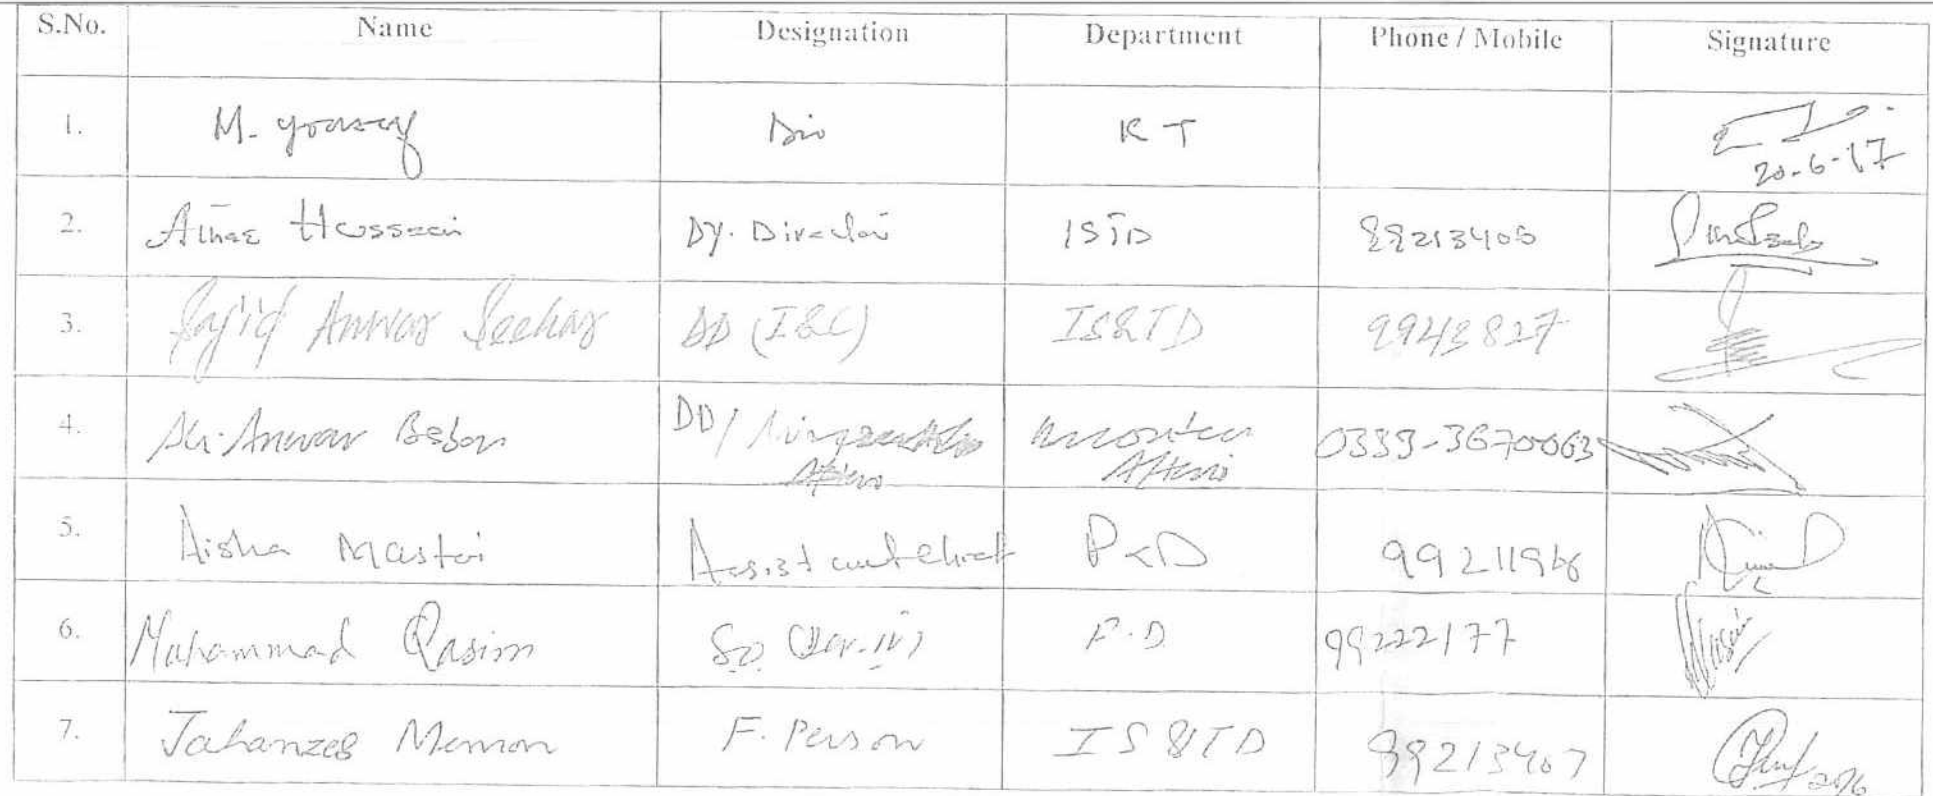 S.No. Name Designation Department Phone / Mobile Signature
1. M. Yousaf Dir RT
20-6-17
2. Hussain Dy. Director ISTD 99213405
3. Sajid Anwar DD (I&C) IS&TD 9943827
4. Ali Anwar DD/ 0333-3670063
5. Aisha Mastoi Assistant chief P&D 99211926
6. Muhammad Qasim SO (Dev.IV) F.D 99222177
7. Jahanzeb Memon F. Person IS&TD 99213407